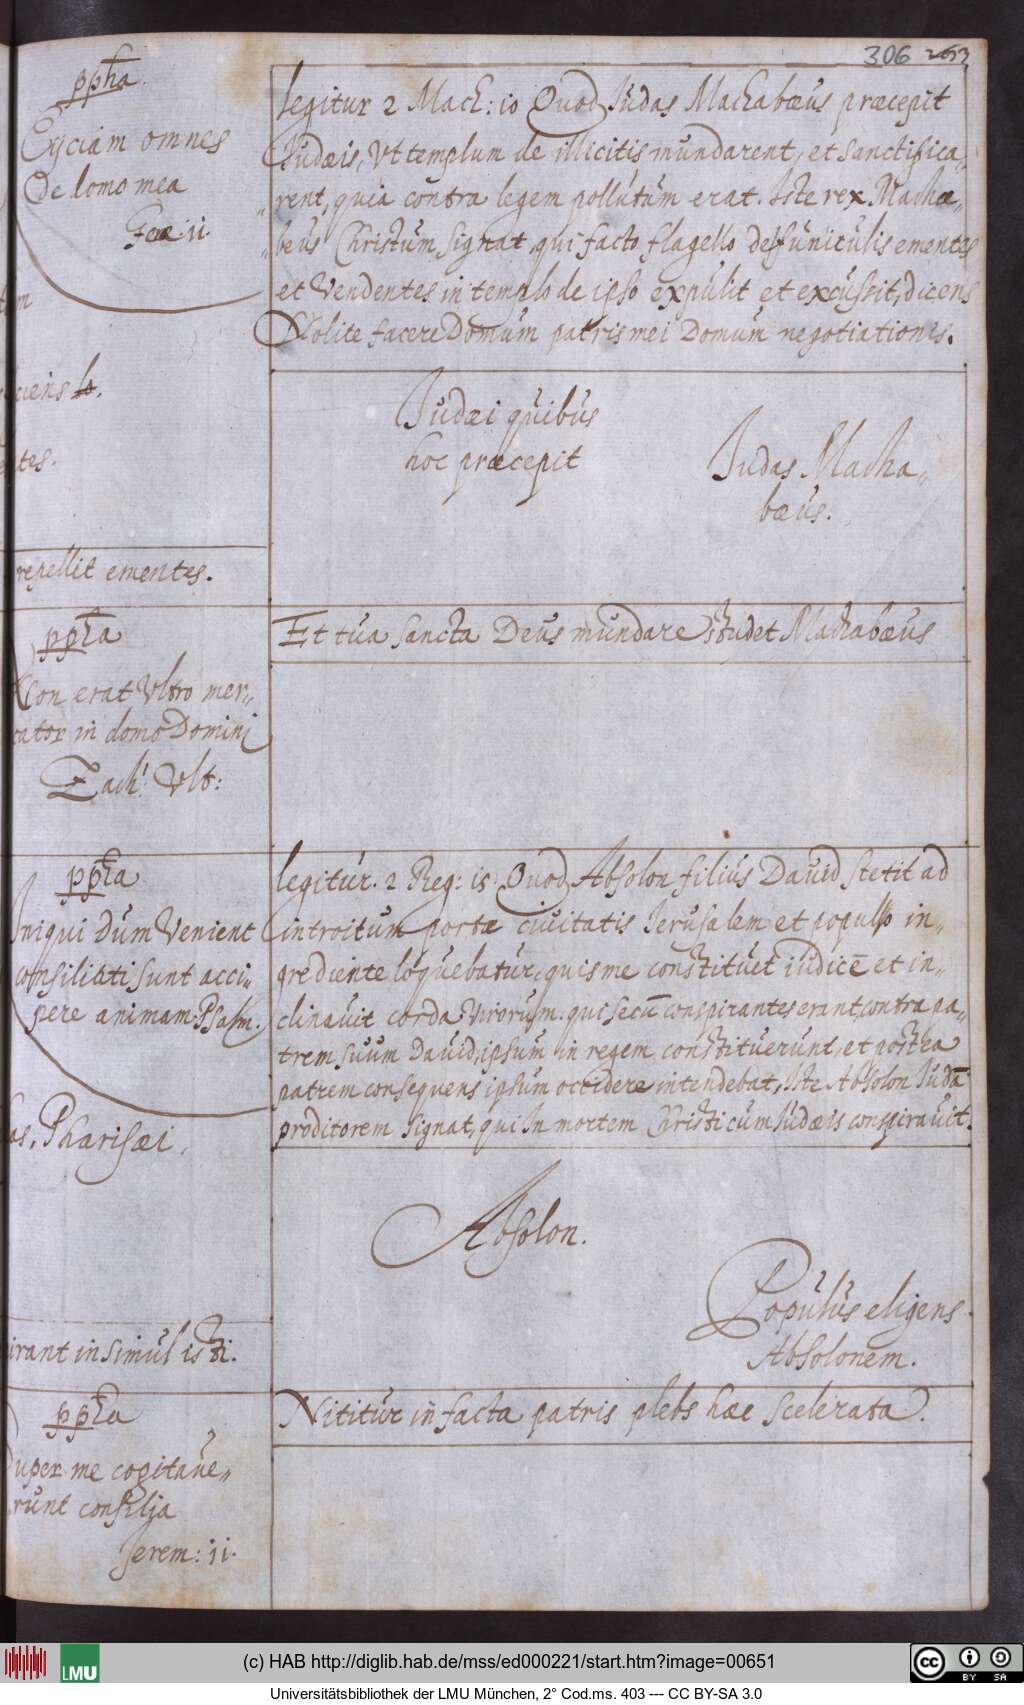 306 263
ppha.
Eijciam omnes
De lomo mea
ii.
legitur 2 Mach: 10 Quod Judas Machabæus præcepit
Judæis, Vt templum de illicitis mundarent, et Sanctifica„
„rent, quia contra legem pollutum erat. Iste rex Machæ„
„beus Christum signat, qui facto flagello funiculis ementes
et Vendentes in templo de ipso expulit et excussit, dicens
Nolite facere Domum patris mei Domum negotiationis.
tes.
Judæi quibus
hoc præcepit
Judas Macha„
bæus.
repellit ementes.
ppha
Non erat Vltro mer„
cator in domo Domini
Zach: Vlt:
Et tua sancta Deus mundare studet Machabæus
ppha
Iniqui dum Venient
consiliati sunt acci„
pere animam: Psalm.
as, Pharisæi.
legitur. 2 Reg: 15. Quod Absolon filius Dauid stetit ad
introitum portæ ciuitatis Jerusalem et populo in„
grediente loquebatur, quis me constituet iudicē et in„
clinauit corda Virorum. qui secū conspirantes erant, contra pa„
trem suum Dauid, ipsum in regem constituerunt, et postea
patrem consequens ipsum occidere intendebat, Iste Absolon Judā
proditorem signat, qui In mortem Christi cum Iudæis conspirauit.
Absolon.
Populus eligens
Absolonem.
irant insimul isti.
ppha
Super me cogitaue„
runt consilja
Jerem: 11.
Nititur in facta patris plebs hæc scelerata.
LMU
(c) HAB http://diglib.hab.de/mss/ed000221/start.htm?image=00651
Universitätsbibliothek der LMU München, 2° Cod.ms. 403 --- CC BY-SA 3.0
cc BY SA